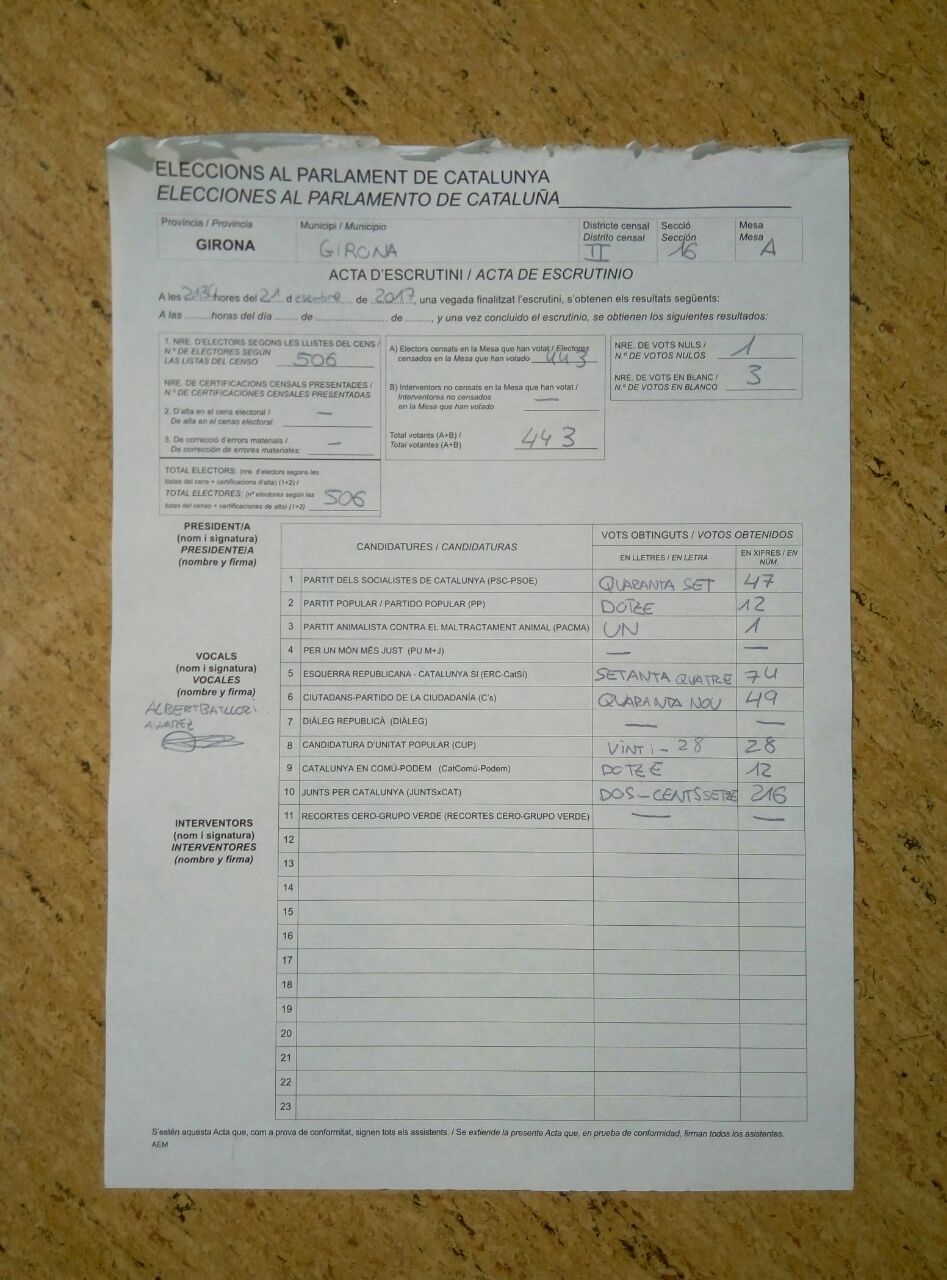 ELECCIONS AL PARLAMENT DE CATALUNYA
ELECCIONES AL PARLAMENTO DE CATALUÑA
Província / Provincia
GIRONA
Municipi / Municipio
GIRONA
Districte censal
Distrito censal
II
Secció
Sección
16
Mesa
Mesa
A
ACTA D'ESCRUTINI / ACTA DE ESCRUTINIO
A les 2134 hores del 21 d esembre de 2017, una vegada finalitzat l'escrutini, s'obtenen els resultats següents:
A las ......... horas del día ....... de ................................ de ........, y una vez concluido el escrutinio, se obtienen los siguientes resultados:
1. NRE. D'ELECTORS SEGONS LES LLISTES DEL CENS /
N.º DE ELECTORES SEGÚN
LAS LISTAS DEL CENSO 506
NRE. DE CERTIFICACIONS CENSALS PRESENTADES /
N.º DE CERTIFICACIONES CENSALES PRESENTADAS
2. D'alta en el cens electoral /
De alta en el censo electoral: —
3. De correcció d'errors materials /
De corrección de errores materiales: —
TOTAL ELECTORS: (nre. d'electors segons les
llistes del cens + certificacions d'alta) (1+2) /
TOTAL ELECTORES: (nº electores según las
listas del censo + certificaciones de alta) (1+2) 506
A) Electors censats en la Mesa que han votat / Electores
censados en la Mesa que han votado 443
B) Interventors no censats en la Mesa que han votat /
Interventores no censados
en la Mesa que han votado —
Total votants (A+B) /
Total votantes (A+B) 443
NRE. DE VOTS NULS /
N.º DE VOTOS NULOS 1
NRE. DE VOTS EN BLANC /
N.º DE VOTOS EN BLANCO 3
PRESIDENT/A
(nom i signatura)
PRESIDENTE/A
(nombre y firma)
VOCALS
(nom i signatura)
VOCALES
(nombre y firma)
ALBERT BATLLORI
ALVAREZ
INTERVENTORS
(nom i signatura)
INTERVENTORES
(nombre y firma)
CANDIDATURES / CANDIDATURAS
VOTS OBTINGUTS / VOTOS OBTENIDOS
EN LLETRES / EN LETRA
EN XIFRES / EN
NÚM.
1 PARTIT DELS SOCIALISTES DE CATALUNYA (PSC-PSOE) QUARANTA SET 47
2 PARTIT POPULAR / PARTIDO POPULAR (PP) DOTZE 12
3 PARTIT ANIMALISTA CONTRA EL MALTRACTAMENT ANIMAL (PACMA) UN 1
4 PER UN MÓN MÉS JUST (PU M+J) — —
5 ESQUERRA REPUBLICANA - CATALUNYA SI (ERC-CatSI) SETANTA QUATRE 74
6 CIUTADANS-PARTIDO DE LA CIUDADANÍA (C's) QUARANTA NOU 49
7 DIÀLEG REPUBLICÀ (DIÀLEG) — —
8 CANDIDATURA D'UNITAT POPULAR (CUP) VINT i - 28 28
9 CATALUNYA EN COMÚ-PODEM (CatComú-Podem) DOTZE 12
10 JUNTS PER CATALUNYA (JUNTSxCAT) DOS-CENTS SETZE 216
11 RECORTES CERO-GRUPO VERDE (RECORTES CERO-GRUPO VERDE) — —
12
13
14
15
16
17
18
19
20
21
22
23
S'estén aquesta Acta que, com a prova de conformitat, signen tots els assistents. / Se extiende la presente Acta que, en prueba de conformidad, firman todos los asistentes.
AEM